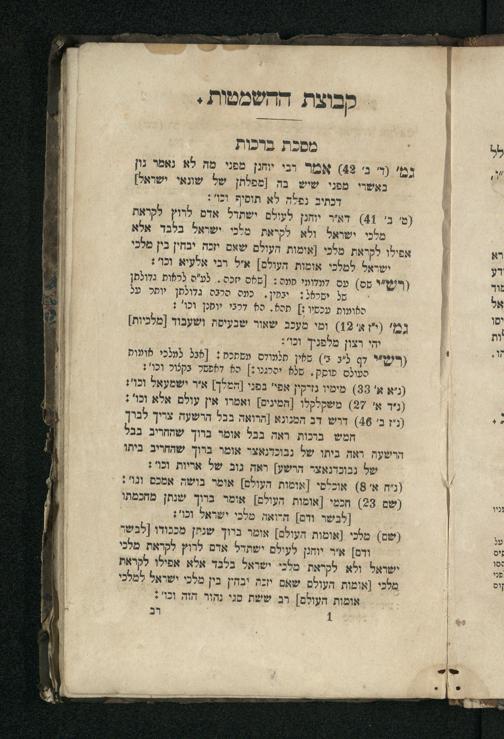 קבוצת ההשמטות .
מסכת ברכות
גמ' (ד' ב' 42) אמר רבי יוחנן מפני מה לא נאמר נון
באשרי מפני שיש בה [מפלתן של שונאי ישראל]
דכתיב נפלה לא תוסיף וכו' :
(ט' ב' 41) דא"ר יוחנן לעולם ישתדל אדם לרוץ לקראת
מלכי ישראל ולא לקראת מלכי ישראל בלבד אלא
אפילו לקראת מלכי [אומות העולם שאם יזכה יבחין בין מלכי
ישראל למלכי אומות העולם] א"ל רבי אלעיא וכו' :
(רש"י שם) עם
של ישראל : יבחין . כמה הרבה גדולתן יותר על
האומות עכשיו :] תהא . הא דרבי יוחנן וכו' :
גמ' (י"ז א' 12) ומי מעכב שאור שבעיסה ושעבוד [מלכיות]
יהי רצון מלפניך וכו' :
(רש"י דף ל"ב ב') שאין תלמודם משתכח : [אבל למלכי אומות
העולם פוסק . שלא יהרגנו :] הא דאפשר בקלור וכו' :
(נ"א א' 33) מימיו נזדקין אפי' בפני [המלך] א"ר ישמעאל וכו' :
(נ"ד א' 27) משקלקלו [המינים] ואמרו אין עולם אלא וכו' :
(נ"ז ב' 46) דרש רב המנונא [הרואה בבל הרשעה צריך לברך
חמש ברכות ראה בבל אומר ברוך שהחריב בבל
הרשעה ראה ביתו של נבוכדנאצר אומר ברוך שהחריב ביתו
של נבוכדנאצר הרשע] ראה גוב של אריות וכו' :
(נ"ח א' 8) אוכלסי [אומות העולם] אומר בושה אמכם וגו' :
(שם 23) חכמי [אומות העולם] אומר ברוך שנתן מחכמתו
[לבשר ודם] הרואה מלכי ישראל וכו' :
(שם) מלכי [אומות העולם] אומר ברוך שנתן מכבודו [לבשר
ודם] א"ר יוחנן לעולם ישתדל אדם לרוץ לקראת מלכי
ישראל ולא לקראת מלכי ישראל בלבד אלא אפילו לקראת
מלכי [אומות העולם שאם יזכה יבחין בין מלכי ישראל למלכי
אומות העולם] רב ששת סגי נהור הוה וכו' :
1 רב